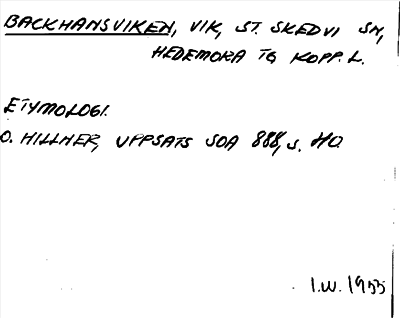 BACKHANSVIKEN, VIK, ST. SKEDVI SN,
HEDEMORA TG KOPP. L.
ETYMOLOGI.
O. HILLNER, UPPSATS SOA 888, s. 40.
I.W. 1955